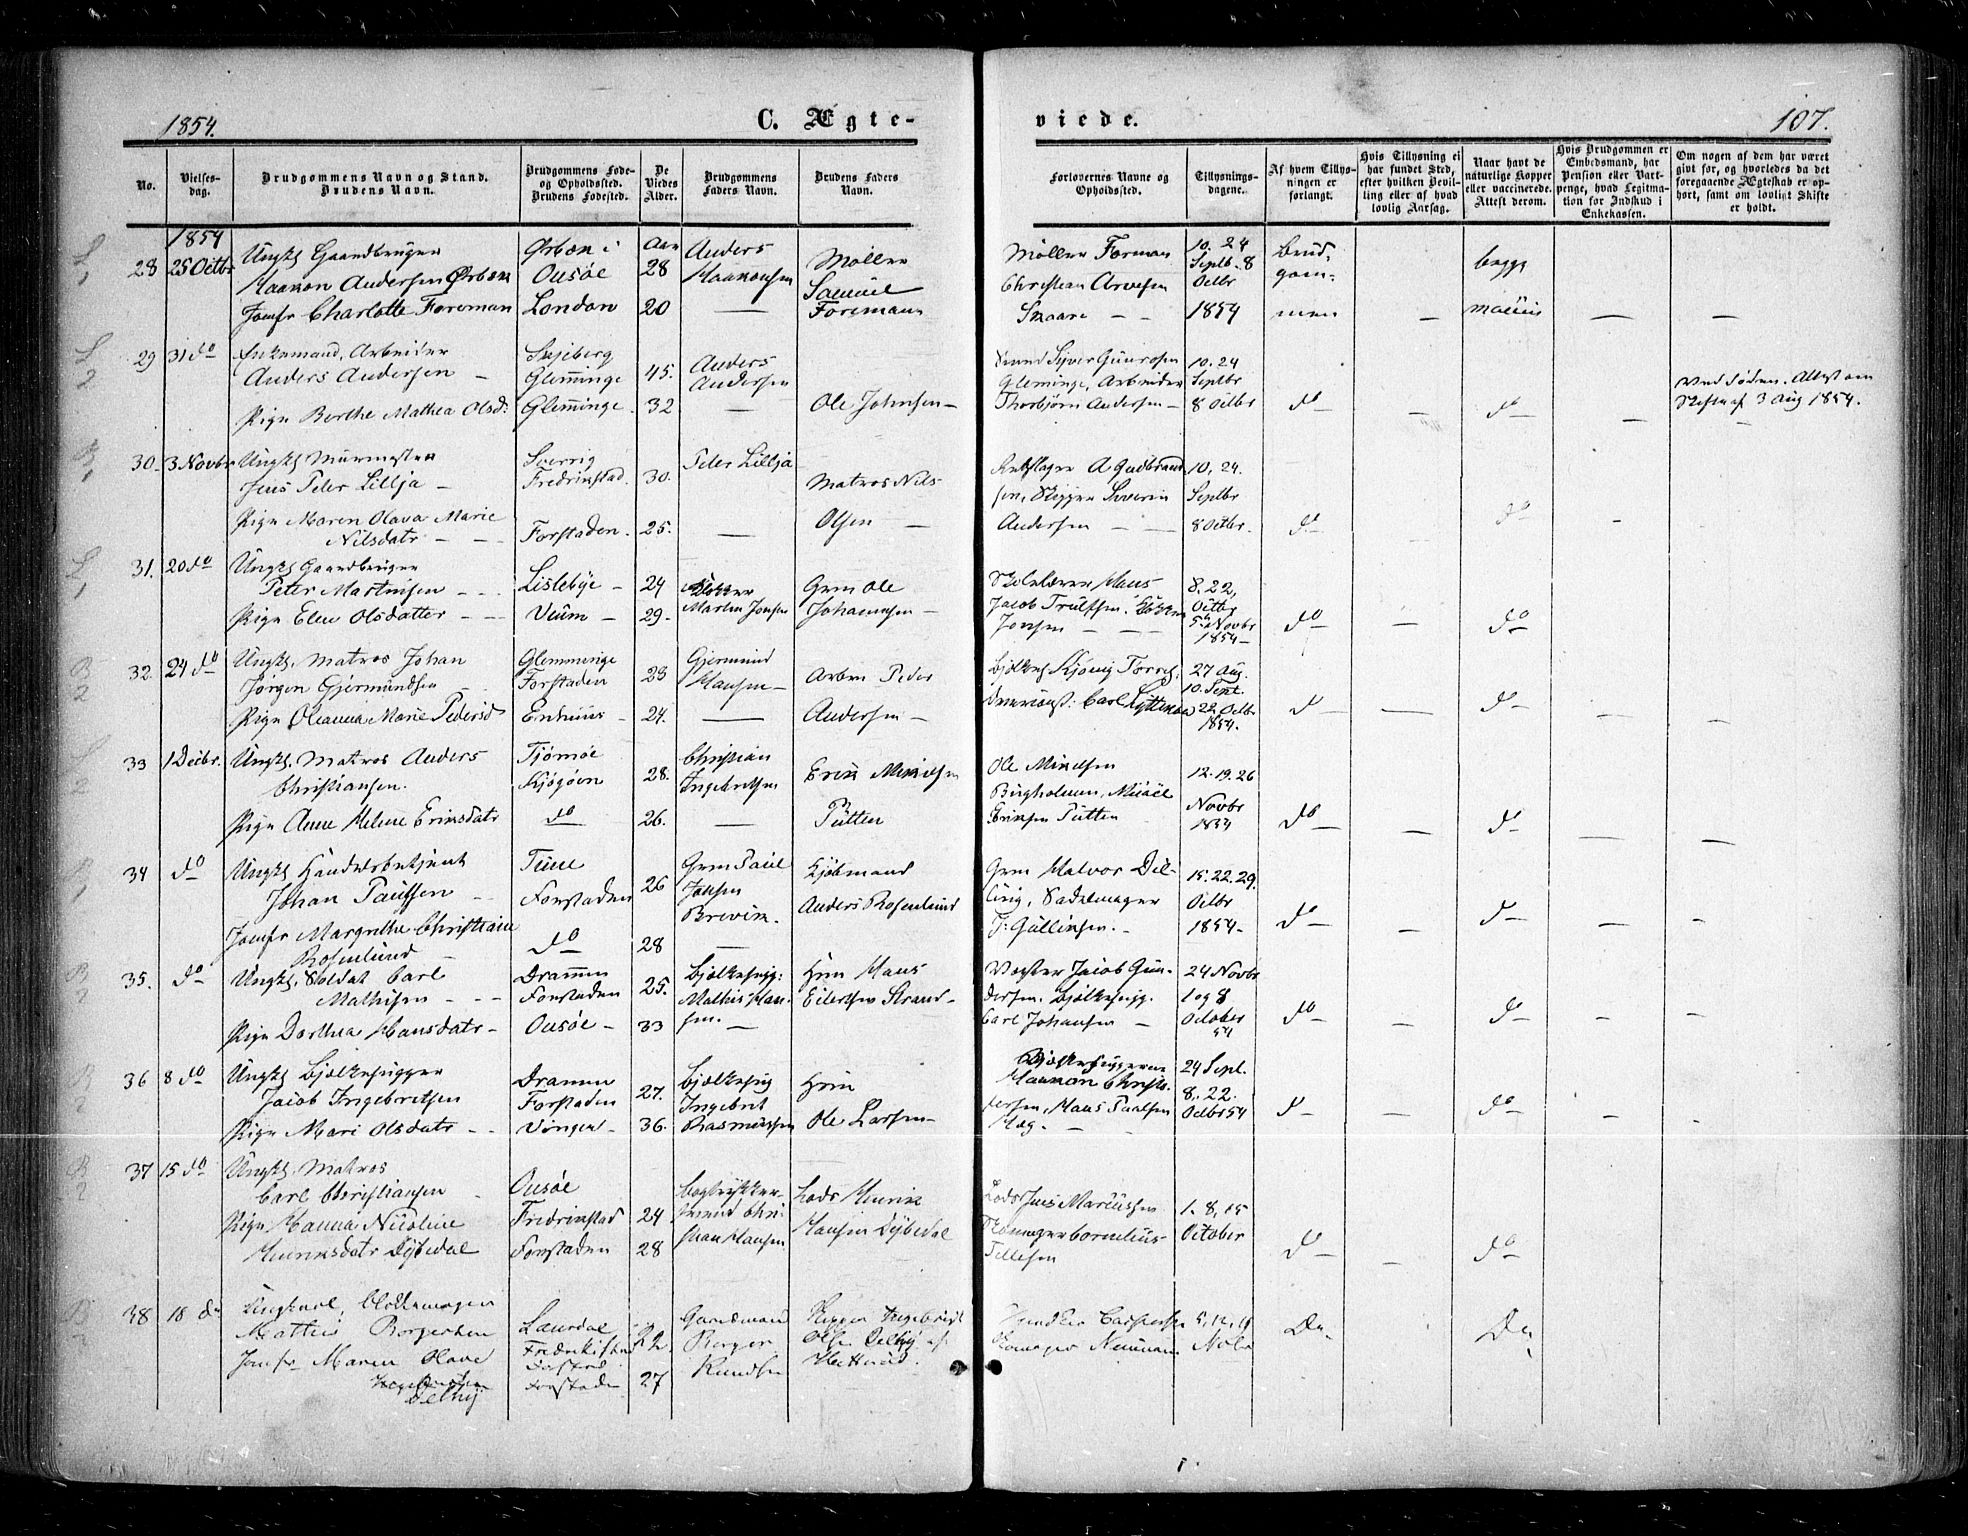 1854.
C. Ægte-
viede.
107.
No.
Vielses-
dag.
Brudgommens Navn og Stand.
Brudens Navn.
Brudgommens Føde-
og Opholdssted.
Brudens Fødested.
De
Viedes
Alder.
Brudgommens
Faders Navn.
Brudens Faders
Navn.
Forlovernes Navne og
Opholdssted.
Tillysnings-
dagene.
Af hvem Tillys-
ningen er
forlangt.
Hvis Tillysning ei
har fundet Sted,
efter hvilken Bevil-
ling eller af hvad
lovlig Aarsag.
Naar havt de
naturlige Kopper
eller vaccinerede.
Attest derom.
Hvis Brudgommen er
Embedsmand, har
Pension eller Vart-
penge, hvad Legitima-
tion for Indskud i
Enkekassen.
Om nogen af dem har været
gift før, og hvorledes da det
foregaaende Ægteskab er op-
hørt, samt om lovligt Skifte
er holdt.
1854
28 25 Octbr
Ungk. Gaardbruger
Haakon Andersen Ørbæk
Jomfr Charlotte Foreman
Ørbæk i
Onsøe
London
Aar
28
20
Anders
Haakonsen
Møller
Samuel
Foremann
Møller Forman
Christian Arvesen
Skaare
10. 24
Septb. 8
Octbr
1854
Brud-
gom-
men
begge
29 31 do
Enkemand, Arbeider
Anders Andersen
Pige Berthe Mathea Olsd:
Skjeberg
Glemminge
Glemminge
45.
32
Anders
Andersen
Ole Johnsen
Glemminge, Arbeider
Thorbjørn Andersen
10. 24
Septbr
8 Octbr
do
do
Ved Døden. Attest om
Skifte af 3 Aug 1854.
30. 3 Novbr
Ungk. Murmester
Jens Peter Lillja
Pige Maren Olava Marie
Nilsdatr
Sverrig
Fredrikstad.
Forstaden.
30.
25.
Peter Lillja
Matros Nils
Olsen
Rebslager A Gudbrand-
sen, Skipper Severin
Andersen
10. 24.
Septbr
8 Octbr.
do
do
31. 20 do
Ungk. Gaardbruger
Peter Martinsen
Pige Elen Olsdatter
Lislebye
Veum
24
29
Martin Jonsen
Grm Ole
Johannesen
Skolelærer Hans
Jacob Trulssen.
Jonsen
8. 22,
Octbr
5. Novbr
1854
do
do
32. 24 do
Ungk. Matros Johan
Jørgen Gjermundsen
Pige Oleanna Marie Pedersd
Glemminge
Forstaden
23
24.
Gjermund
Hansen
Arbm Peder
Andersen
27 Aug.
10. Sept.
22 Octbr
1854.
do
do
33 1 Decbr.
Ungk. Matros Anders
Christiansen.
Pige Anne Helene Eriksdatr
Tjømøe
Kjøgøen
do
28.
26.
Christian
Ingebretsen
Erik Mikelsen
Putten
Ole Mikelsen
Bugholmen, Micael
Eriksen Putten
12. 19. 26
Novbr
1854
do
do
34 do
Ungk. Handelsbetjent
Johan Paulssen
Jomfr Margrethe Christiane
Rosenlund
Tune
Forstaden
do
26
28
Grm Paul
Jansen
Brevik.
Kjøbmand
Anders Rosenlund
Grm Halvor Dil-
Sadelmager
J: Gullicksen.
15. 22. 29.
Octbr
1854
do
do
35. do
Ungk. Soldat Carl
Mathisen
Pige Dorthea Hansdatr
Drammen
Forstaden
Onsøe
25.
33
Bjelkehugg:
Mathis Han-
sen.
Hmn Hans
Eilertsen Strand
Vægter Jacob Gun-
dersen. Bjelkehugg.
Carl Johansen
24 Novbr
1 og 8
October
54
do
do
36 8 do
Ungk. Bjelkehugger
Jacob Ingebretsen
Pige Mari Olsdatr
Drammen
Forstaden
Vinger
27.
36.
Bjelkehug
Ingebret
Rasmussen
Hmn
Ole Larsen
Bjelkehuggerne
Haakon Christo-
fersen, Hans Paalsen
Hæg
24 Sept.
8. 22.
Octbr 54
do
do
37 15 do
Ungk. Matros
Carl Christiansen
Pige Hanna Nicoline
Henriksdatr Dybedal
Onsøe
Fredrikstad
Forstaden
24
28
Bogtrykker-
svend Chri-
stian Hansen
Lods Henrik
Hansen Dybedal
Lods Jens Marcussen
Cornelius
Tellefsen
1. 8. 15
October
do
do
38 18 do
Ungkarl,
Matthis Borgersen
Jomfr Maren Olave
Delhij
Laurdal
Fredrikstad
Forstaden
22
27
Gaardmand
Borger
Knudsen
Skipper Ingebrigt
5, 12, 19
Novbr
Do
Do